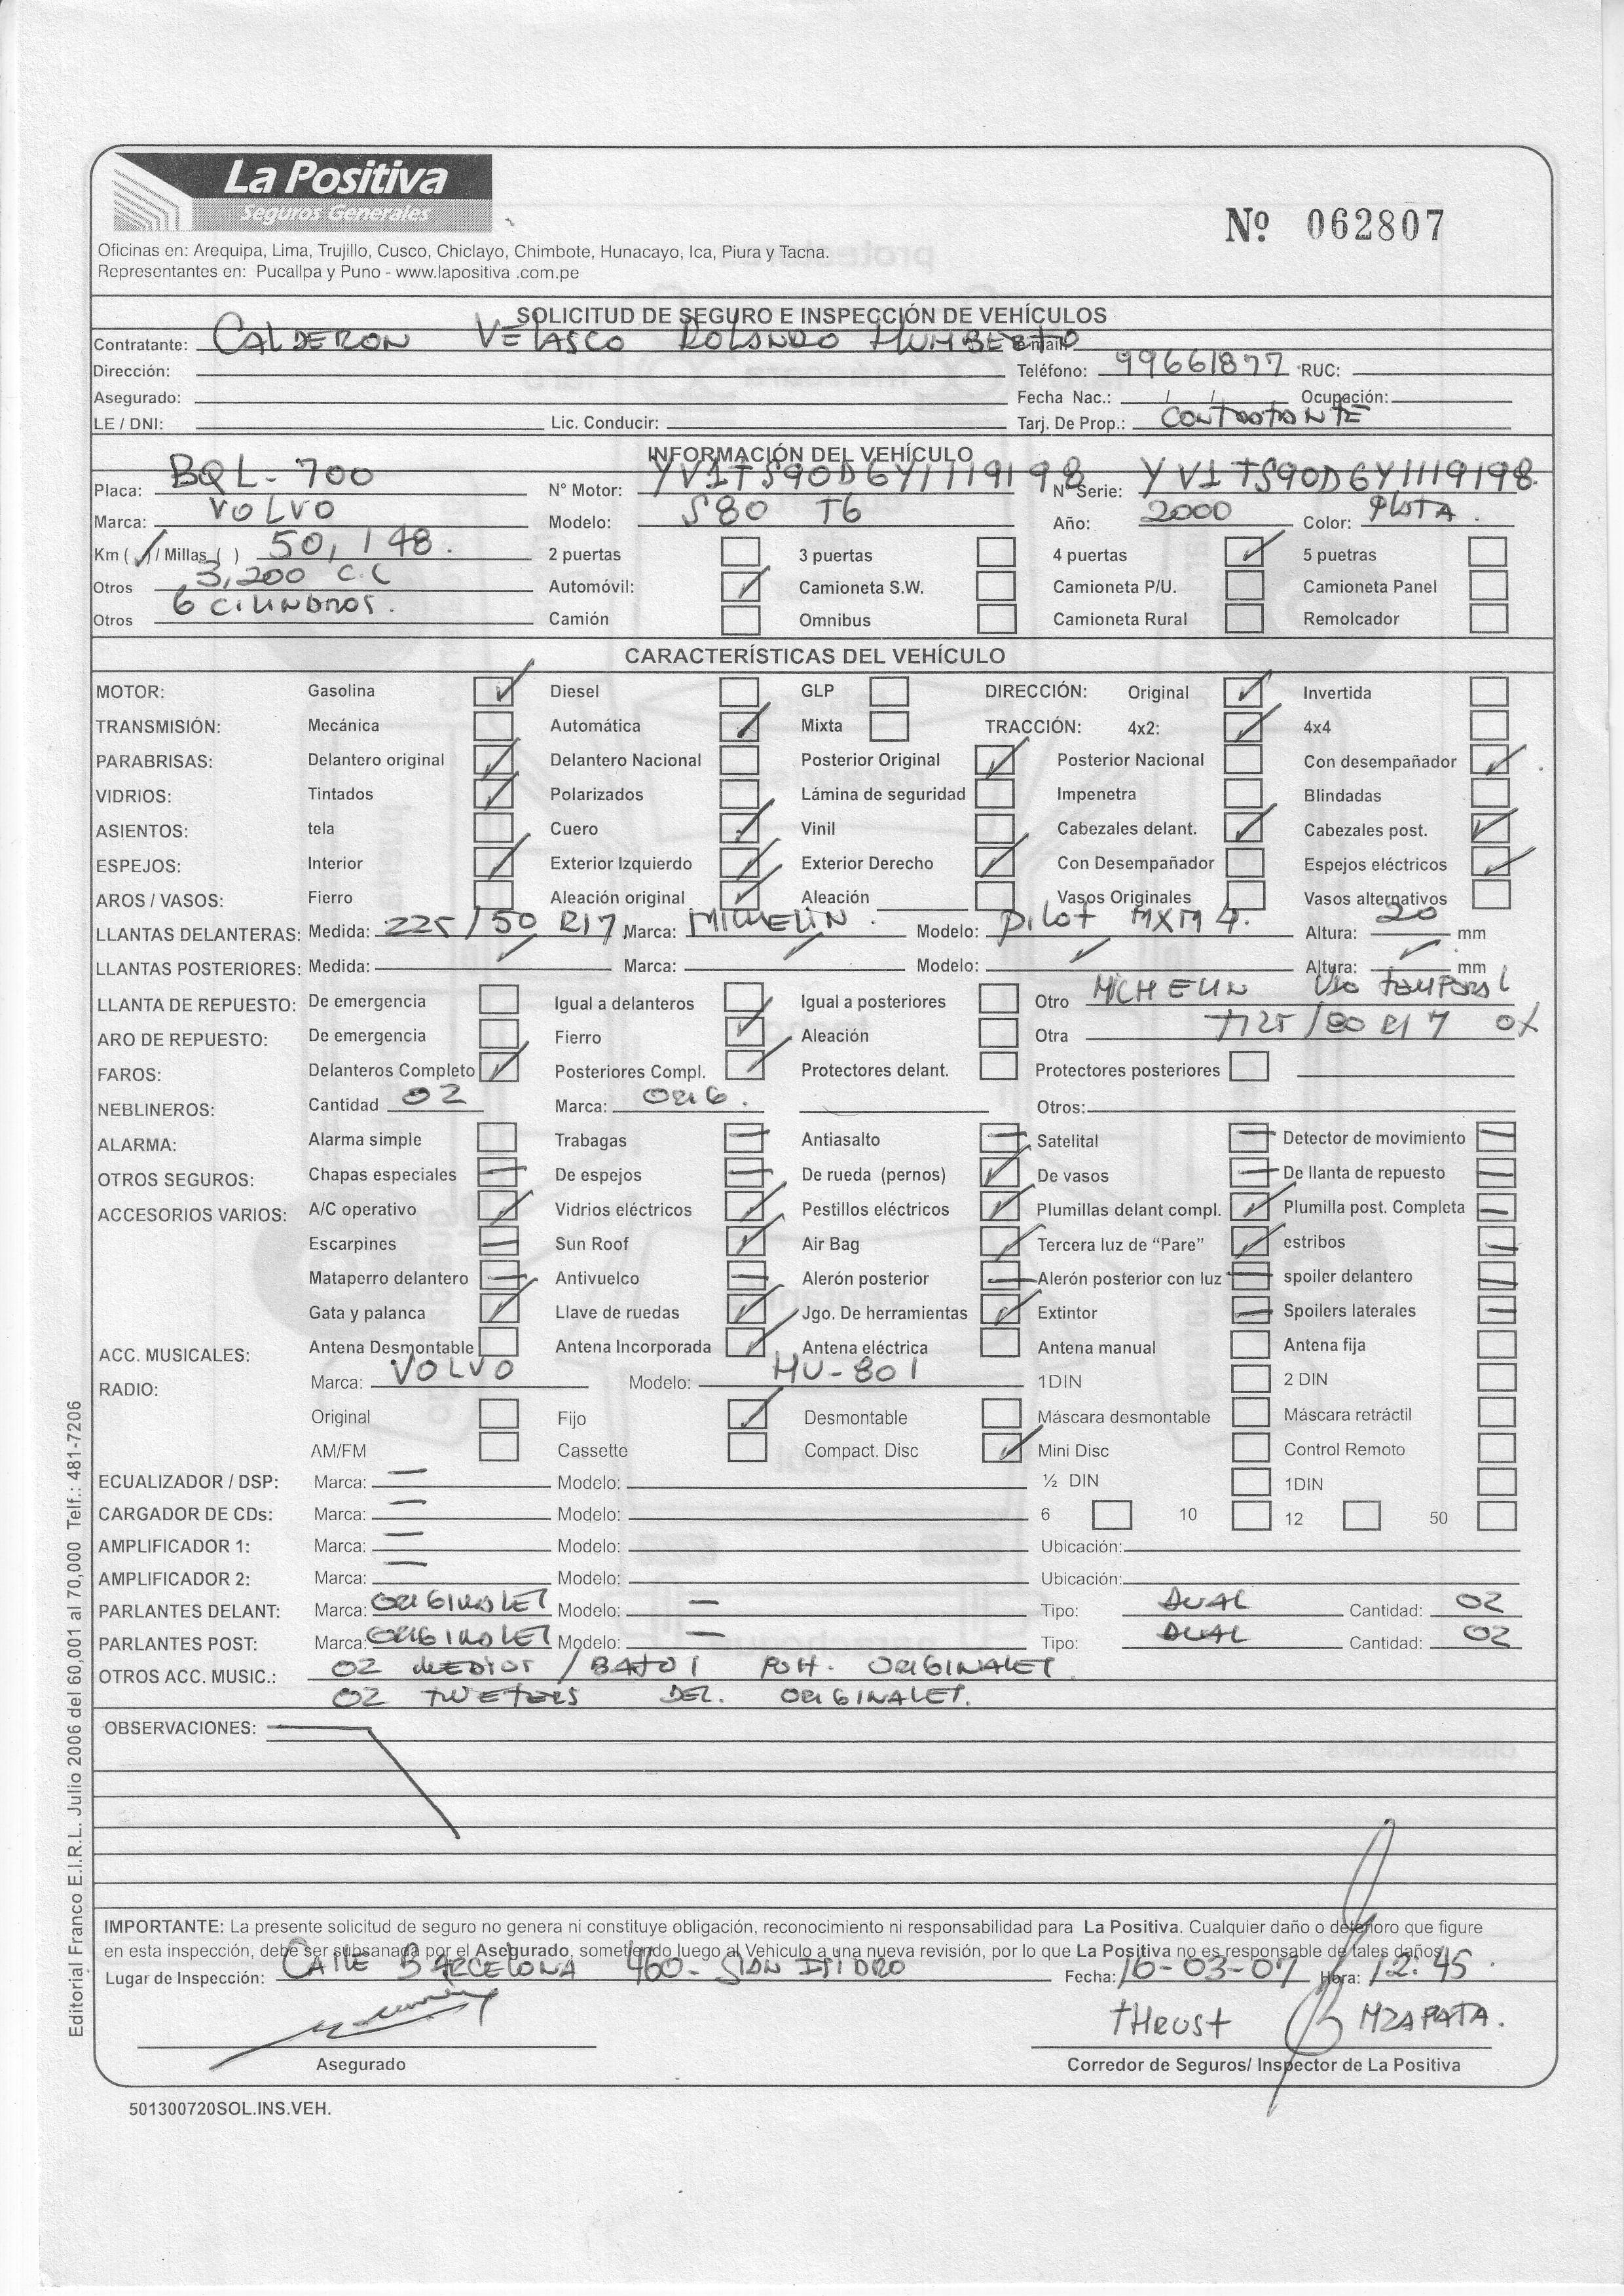 La Positiva
Seguros Generales
Nº 062807
Oficinas en: Arequipa, Lima, Trujillo, Cusco, Chiclayo, Chimbote, Hunacayo, Ica, Piura y Tacna.
Representantes en: Pucallpa y Puno - www.lapositiva .com.pe
SOLICITUD DE SEGURO E INSPECCIÓN DE VEHÍCULOS
Contratante: CALDERON VELASCO ROLANDO HUMBERTO
Dirección: Teléfono: 99661877 RUC:
Asegurado: Fecha Nac.: / / Ocupación:
LE / DNI: Lic. Conducir: Tarj. De Prop.: CONTRATANTE
INFORMACIÓN DEL VEHÍCULO
Placa: BQL-700 N° Motor: YV1TS90D6Y1119198 N° Serie: YV1TS90D6Y1119198
Marca: VOLVO Modelo: S80 T6 Año: 2000 Color: PLATA.
Km (✓) / Millas ( ) 50,148. 2 puertas 3 puertas 4 puertas ✓ 5 puetras
Otros 3,200 C.C Automóvil: ✓ Camioneta S.W. Camioneta P/U. Camioneta Panel
Otros 6 CILINDROS. Camión Omnibus Camioneta Rural Remolcador
CARACTERÍSTICAS DEL VEHÍCULO
MOTOR: Gasolina ✓ Diesel GLP DIRECCIÓN: Original ✓ Invertida
TRANSMISIÓN: Mecánica Automática ✓ Mixta TRACCIÓN: 4x2: ✓ 4x4
PARABRISAS: Delantero original ✓ Delantero Nacional Posterior Original ✓ Posterior Nacional Con desempañador ✓
VIDRIOS: Tintados ✓ Polarizados Lámina de seguridad Impenetra Blindadas
ASIENTOS: tela Cuero ✓ Vinil Cabezales delant. ✓ Cabezales post. ✓
ESPEJOS: Interior ✓ Exterior Izquierdo ✓ Exterior Derecho ✓ Con Desempañador Espejos eléctricos ✓
AROS / VASOS: Fierro Aleación original ✓ Aleación Vasos Originales Vasos alternativos
LLANTAS DELANTERAS: Medida: 225/50 R17 Marca: MICHELIN. Modelo: PILOT MXM4. Altura: 20 mm
LLANTAS POSTERIORES: Medida: ✓ Marca: ✓ Modelo: ✓ Altura: ✓ mm
LLANTA DE REPUESTO: De emergencia Igual a delanteros Igual a posteriores Otro MICHELIN USO TEMPORAL
ARO DE REPUESTO: De emergencia Fierro ✓ Aleación Otra T125/80 R17
FAROS: Delanteros Completo ✓ Posteriores Compl. ✓ Protectores delant. Protectores posteriores
NEBLINEROS: Cantidad 02 Marca: ORIG. Otros:
ALARMA: Alarma simple Trabagas — Antiasalto — Satelital — Detector de movimiento —
OTROS SEGUROS: Chapas especiales — De espejos — De rueda (pernos) ✓ De vasos — De llanta de repuesto —
ACCESORIOS VARIOS: A/C operativo ✓ Vidrios eléctricos ✓ Pestillos eléctricos ✓ Plumillas delant compl. ✓ Plumilla post. Completa —
Escarpines — Sun Roof ✓ Air Bag ✓ Tercera luz de “Pare” ✓ estribos —
Mataperro delantero — Antivuelco — Alerón posterior — Alerón posterior con luz — spoiler delantero —
Gata y palanca ✓ Llave de ruedas ✓ Jgo. De herramientas ✓ Extintor — Spoilers laterales —
ACC. MUSICALES: Antena Desmontable Antena Incorporada ✓ Antena eléctrica Antena manual Antena fija
RADIO: Marca: VOLVO Modelo: HU-801 1DIN 2 DIN
Original Fijo ✓ Desmontable Máscara desmontable Máscara retráctil
AM/FM Cassette Compact. Disc ✓ Mini Disc Control Remoto
ECUALIZADOR / DSP: Marca: — Modelo: ½ DIN 1DIN
CARGADOR DE CDs: Marca: — Modelo: 6 10 12 50
AMPLIFICADOR 1: Marca: — Modelo: Ubicación:
AMPLIFICADOR 2: Marca: — Modelo: Ubicación:
PARLANTES DELANT: Marca: ORIGINALES Modelo: — Tipo: DUAL Cantidad: 02
PARLANTES POST: Marca: ORIGINALES Modelo: — Tipo: DUAL Cantidad: 02
OTROS ACC. MUSIC.: 02 MEDIOS / BAJOS POST. ORIGINALES
02 TWETERS DEL. ORIGINALES.
OBSERVACIONES:
IMPORTANTE: La presente solicitud de seguro no genera ni constituye obligación, reconocimiento ni responsabilidad para La Positiva. Cualquier daño o deterioro que figure
en esta inspección, debe ser subsanada por el Asegurado, sometiendo luego al Vehiculo a una nueva revisión, por lo que La Positiva no es responsable de tales daños.
Lugar de Inspección: CALLE BARCELONA 460- SAN ISIDRO Fecha: 16-03-07 Hora: 12:45.
THRUST MZAPATA.
Asegurado Corredor de Seguros/ Inspector de La Positiva
501300720SOL.INS.VEH.
Editorial Franco E.I.R.L. Julio 2006 del 60,001 al 70,000 Telf.: 481-7206